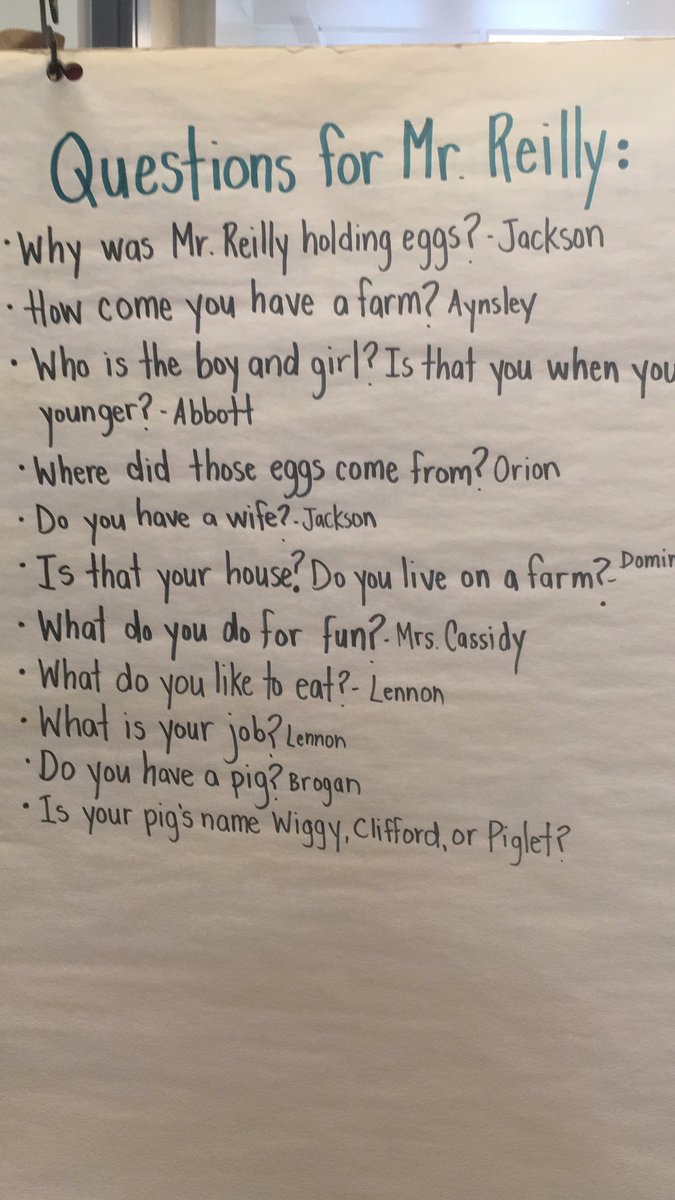 Questions for Mr. Reilly:
· Why was Mr. Reilly holding eggs? - Jackson
· How come you have a farm? Aynsley
· Who is the boy and girl? Is that you when you
younger? - Abbott
· Where did those eggs come from? Orion
· Do you have a wife? - Jackson
· Is that your house? Do you live on a farm? -
· What do you do for fun? - Mrs. Cassidy
· What do you like to eat? - Lennon
· What is your job? Lennon
· Do you have a pig? Brogan
· Is your pig's name Wiggy, Clifford, or Piglet?